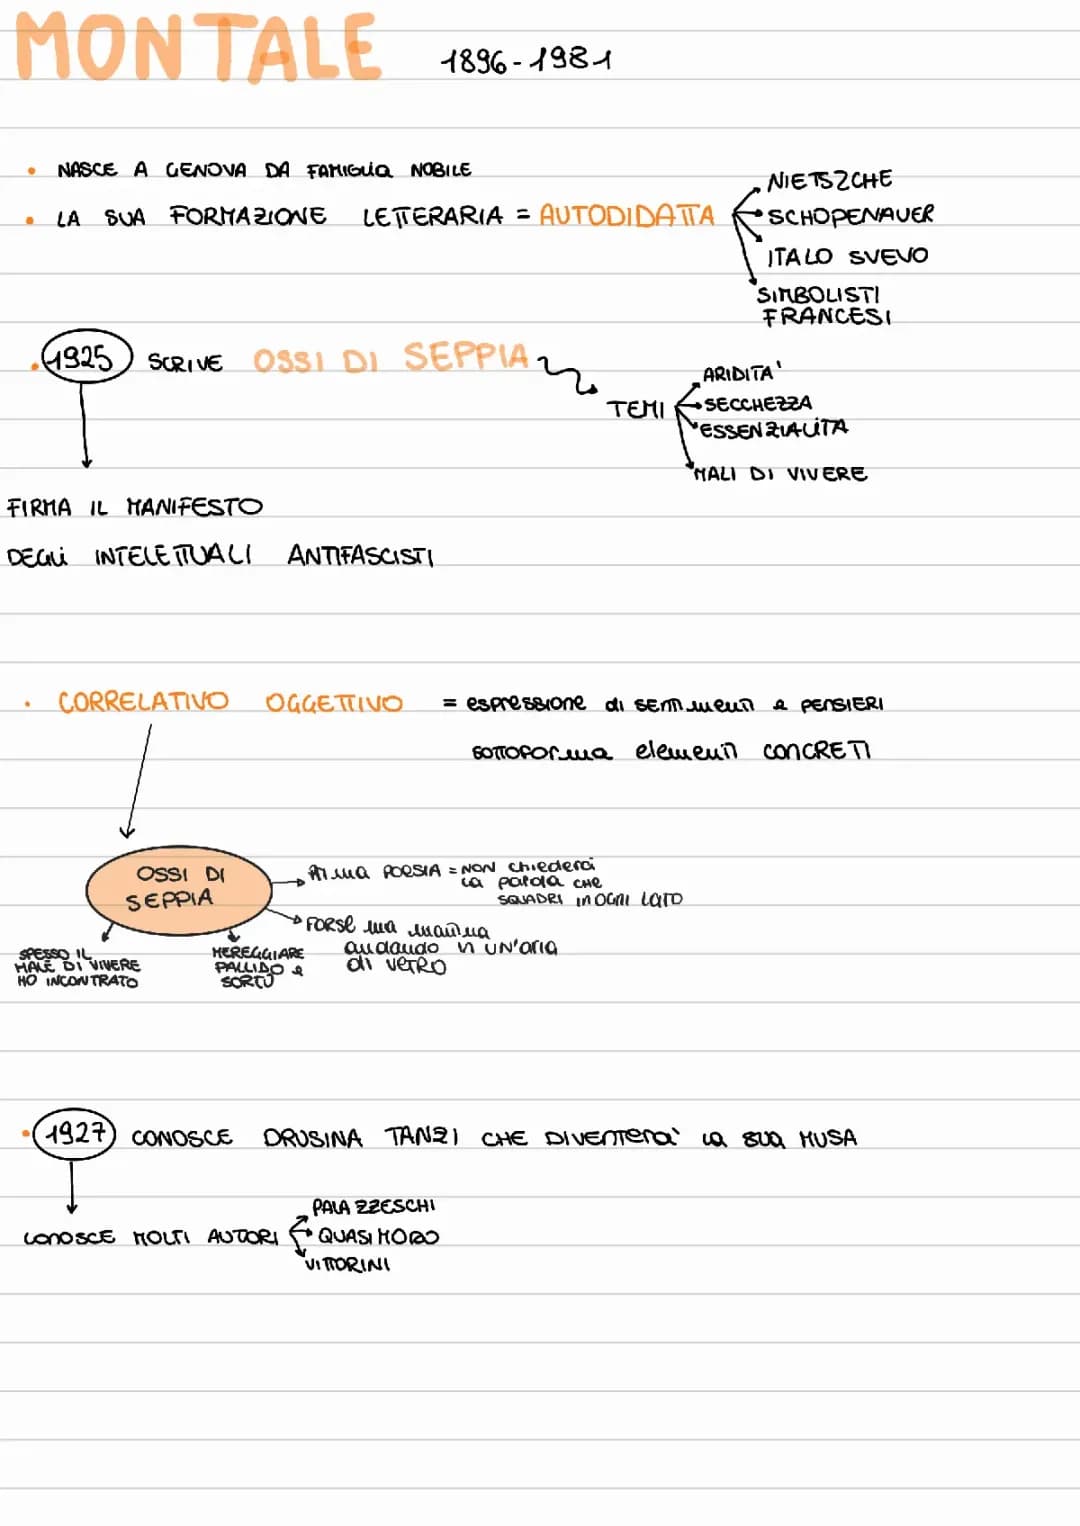 MONTALE 1896-1981
• NASCE A GENOVA DA FAMIGLIA NOBILE
• LA SUA FORMAZIONE LETTERARIA = AUTODIDATTA
NIETSZCHE
SCHOPENAUER
ITALO SVEVO
SIMBOLISTI
FRANCESI
• 1925 SCRIVE OSSI DI SEPPIA
TEMI
ARIDITA'
SECCHEZZA
ESSENZIALITA
MALI DI VIVERE
FIRMA IL MANIFESTO
DEGLI INTELETTUALI ANTIFASCISTI
• CORRELATIVO OGGETTIVO = espressione di sentimenti e PENSIERI
SOTTOFORma elementi CONCRETI
OSSI DI
SEPPIA
Prima POESIA = NON chiederci
la parola CHE
SQUADRI in OGNI LATO
FORSE una mattina
andando in UN'aria
di VETRO
SPESSO IL
MALE DI VIVERE
HO INCONTRATO
MEREGGIARE
PALLIDO e
SORTO
• 1927 CONOSCE DRUSINA TANZI CHE DIVENTERA' la SUA MUSA
CONOSCE MOLTI AUTORI
PALAZZESCHI
QUASIMODO
VITTORINI